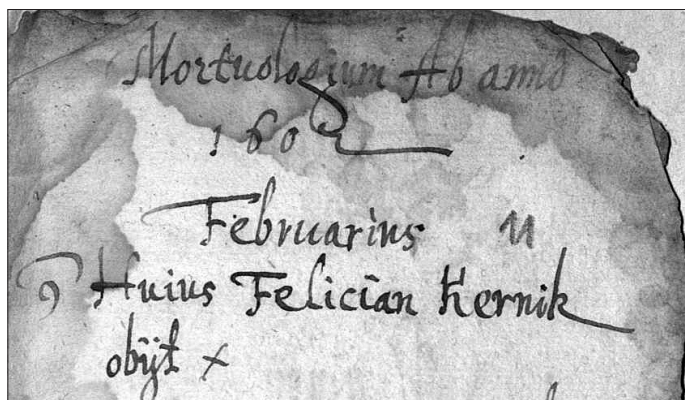 Mortuologium Ab anno
1602
Februarius 11
9 Huius Felician Kernik
obijt x